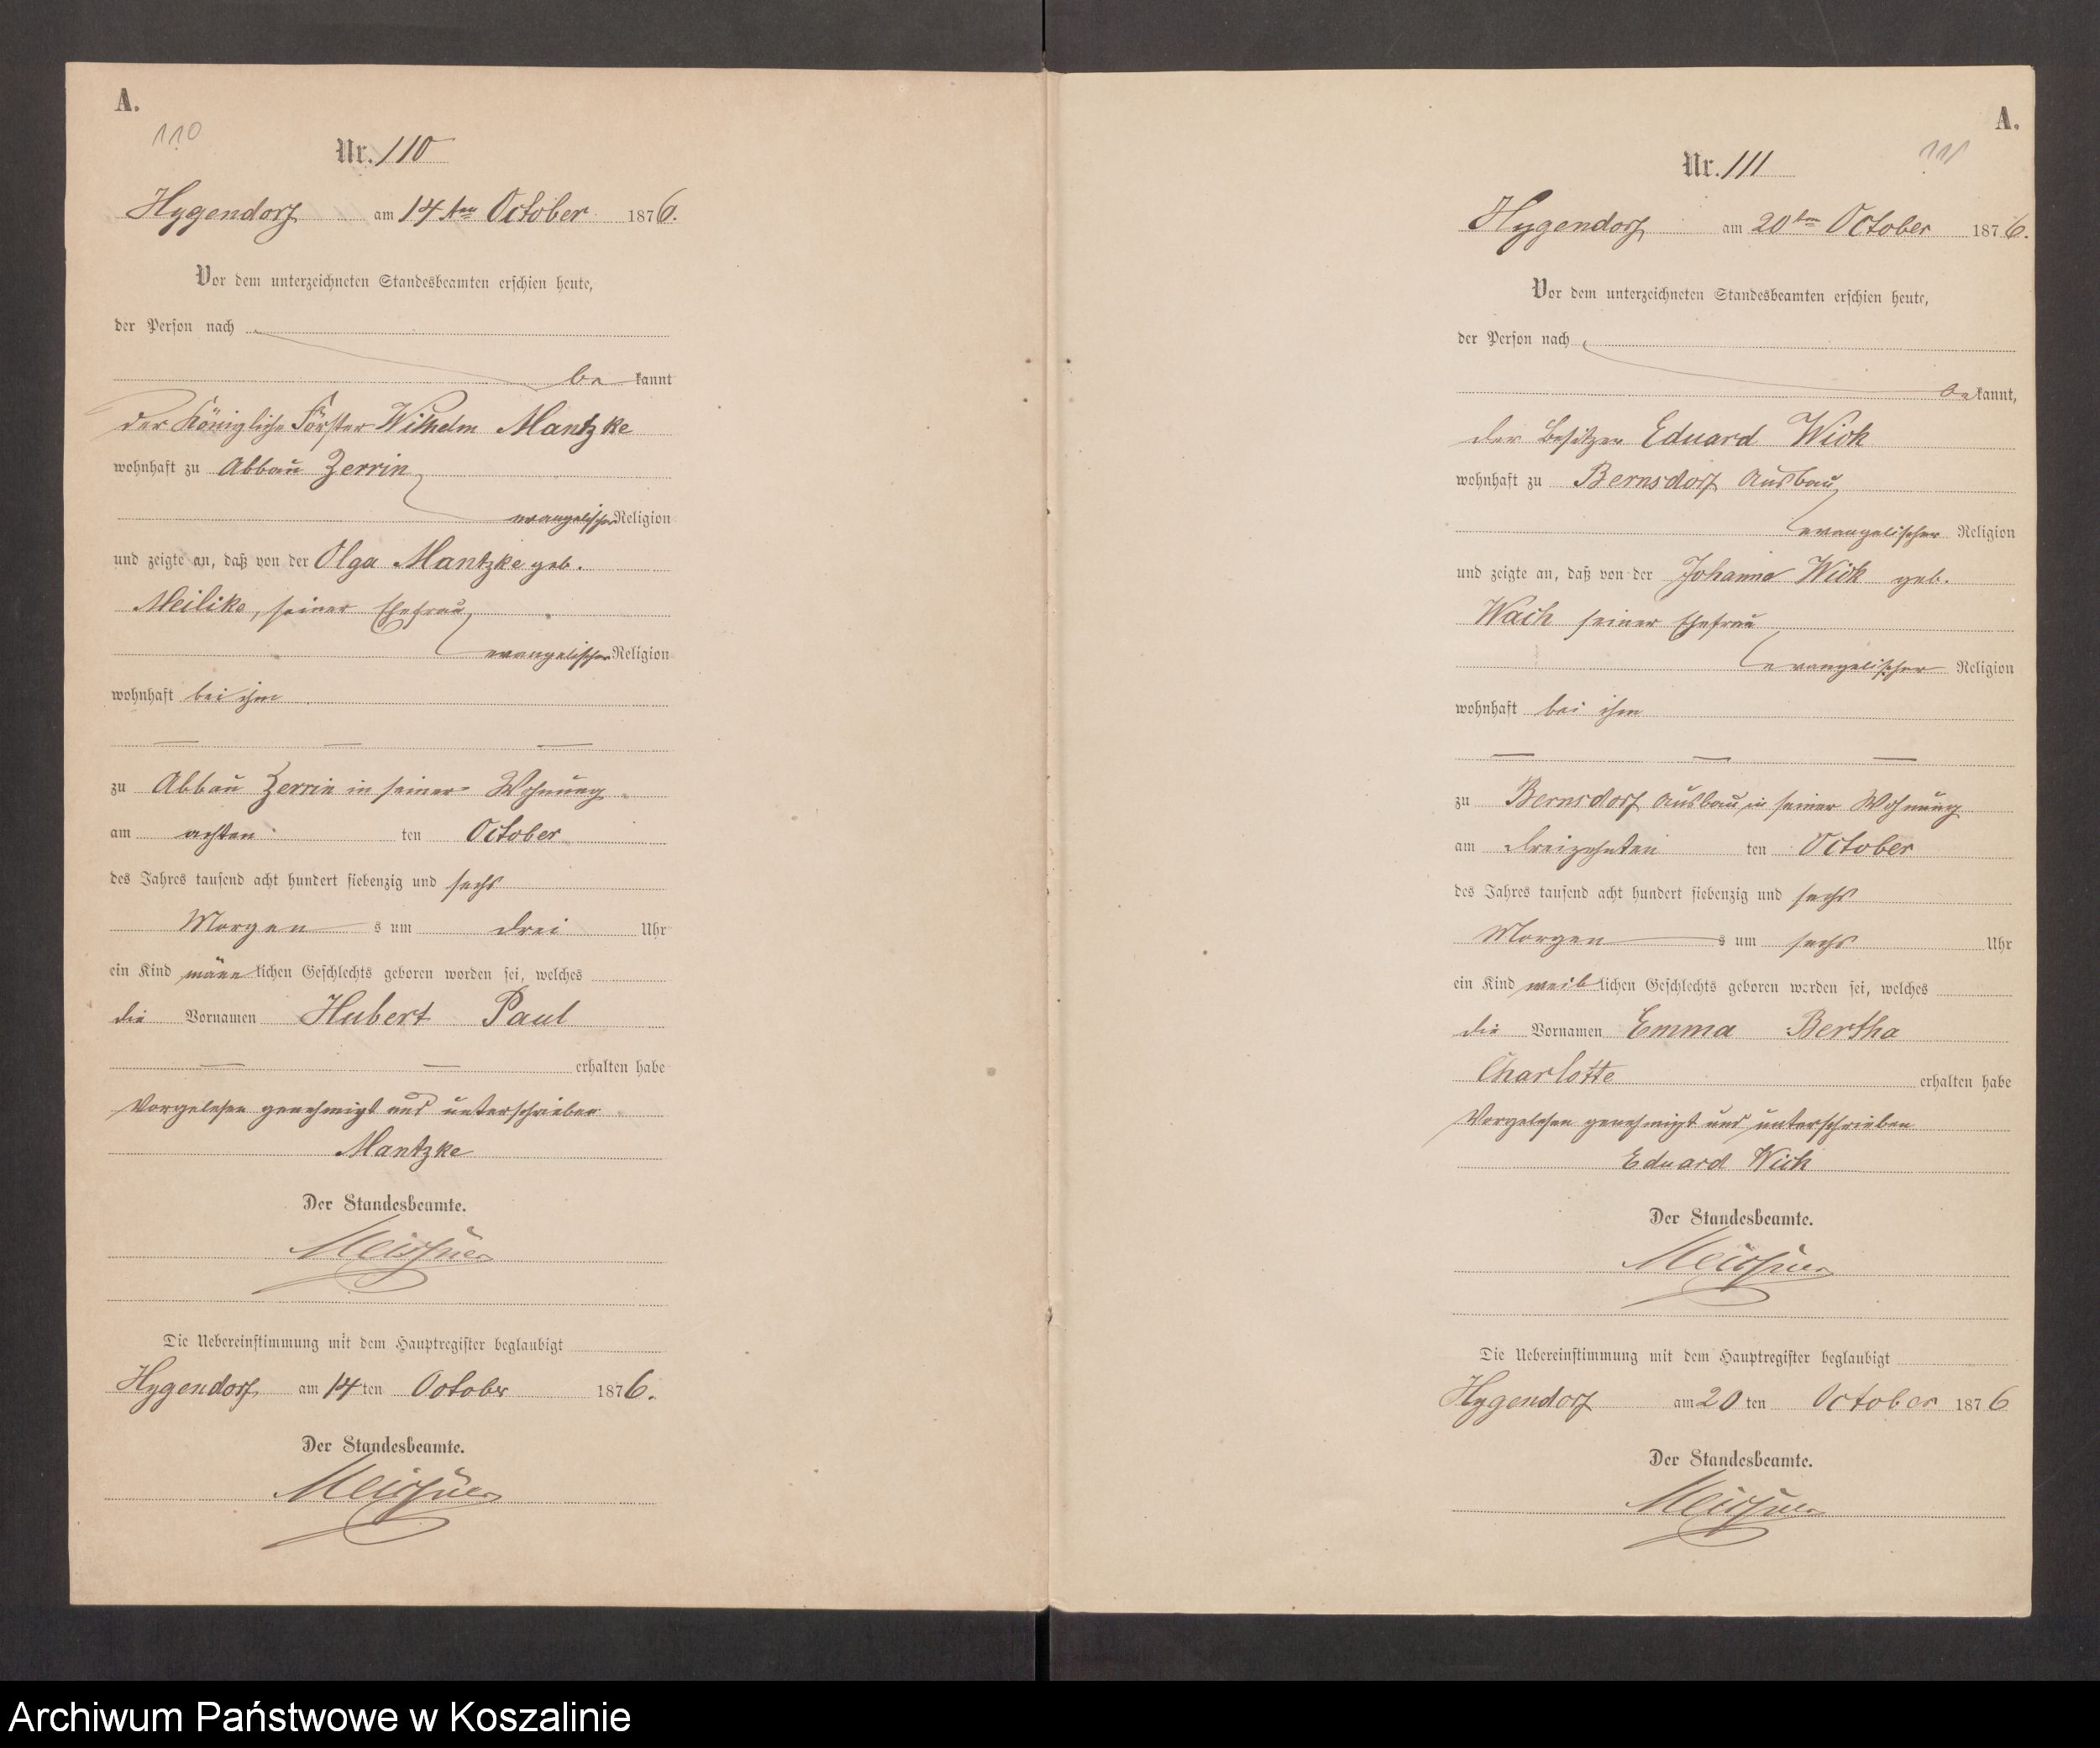 A.
110
Nr. 110
Hygendorf am 14ten October 1876.
Vor dem unterzeichneten Standesbeamten erschien heute,
der Person nach
be kannt
der Königliche Förster Wilhelm Mantzke
wohnhaft zu Abbau Zerrin
evangelischer Religion
und zeigte an, daß von der Olga Mantzke geb.
Meilike, seiner Ehefrau
evangelischer Religion
wohnhaft bei ihm
zu Abbau Zerrin in seiner Wohnung
am achten ten October
des Jahres tausend acht hundert siebenzig und sechs
Morgen s um drei Uhr
ein Kind männlichen Geschlechts geboren worden sei, welches
die Vornamen Hubert Paul
erhalten habe
Vorgelesen genehmigt und unterschrieben
Mantzke
Der Standesbeamte.
Meissner
Die Uebereinstimmung mit dem Hauptregister beglaubigt
Hygendorf am 14 ten October 1876.
Der Standesbeamte.
Meissner
A.
111
Nr. 111
Hygendorf am 20ten October 1876.
Vor dem unterzeichneten Standesbeamten erschien heute,
der Person nach
bekannt,
der Besitzer Eduard Wick
wohnhaft zu Bernsdorf Ausbau
evangelischer Religion
und zeigte an, daß von der Johanna Wick geb.
Wach seiner Ehefrau
evangelischer Religion
wohnhaft bei ihm
zu Bernsdorf Ausbau in seiner Wohnung
am dreizehnten ten October
des Jahres tausend acht hundert siebenzig und sechs
Morgen s um sechs Uhr
ein Kind weiblichen Geschlechts geboren worden sei, welches
die Vornamen Emma Bertha
Charlotte erhalten habe
Vorgelesen genehmigt und unterschrieben
Eduard Wick
Der Standesbeamte.
Meissner
Die Uebereinstimmung mit dem Hauptregister beglaubigt
Hygendorf am 20 ten October 1876
Der Standesbeamte.
Meissner
Archiwum Państwowe w Koszalinie